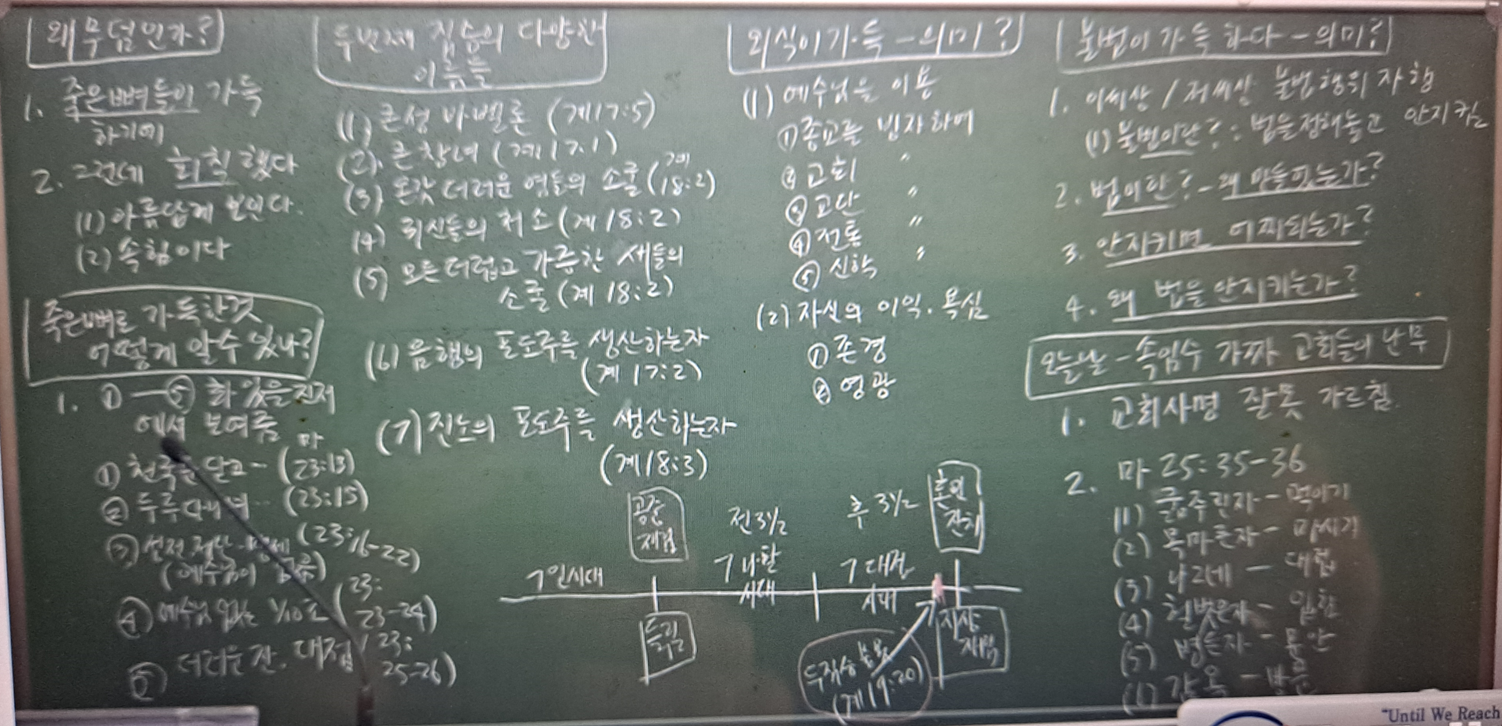 왜 무덤인가?
1. 죽은 뼈들이 가득
하기에
2. 그런데 회칠했다
(1) 아름답게 보인다.
(2) 속힘이다
죽은뼈로 가득한것
어떻게 알수 있나?
1. ①-⑤ 화 있을진저
에서 보여줌
① 천국문 닫고 - (마 23:13)
② 두루다녀 - (23:15)
③ 성전 (23:16-22)
(예수님이 없음)
④ 예수님 없는 1/10조 (23:
23-24)
⑤ 더러운 잔. 대접 (23:
25-26)
두번째 짐승의 다양한
이름들
(1) 큰성 바벨론 (계17:5)
(2) 큰 창녀 (계17:1)
(3) 온갖 더러운 영들의 소굴 (계 18:2)
(4) 귀신들의 처소 (계 18:2)
(5) 모든 더럽고 가증한 새들의
소굴 (계 18:2)
(6) 음행의 포도주를 생산하는자
(계 17:2)
(7) 진노의 포도주를 생산하는자
(계 18:3)
외식이 가득 - 의미?
(1) 예수님을 이용
① 종교를 빙자하여
② 교회 〃
③ 교단 〃
④ 전통 〃
⑤ 신학 〃
(2) 자신의 이익. 욕심
① 존경
② 영광
불법이 가득 하다 - 의미?
1. 이세상 / 저세상 불법행위 자행
(1) 불법이란? : 법을 정해놓고 안지킴
2. 법이란? - 왜 만들었는가?
3. 안지키면 어찌되는가?
4. 왜 법을 안지키는가?
오늘날 - 속임수 가짜 교회들의 난무
1. 교회사명 잘못 가르침.
2. 마 25:35-36
(1) 굶주린자 - 먹이기
(2) 목마른자 - 마시기
(3) 나그네 - 대접
(4) 헐벗은자 - 입힘
(5) 병든자 - 문안
감옥 - 방문
공중
재림
전 3½
후 3½
혼인
잔치
7인시대
7나팔
시대
7대접
시대
들림
지상
재림
두짐승
(계 19:20)
"Until We Reach